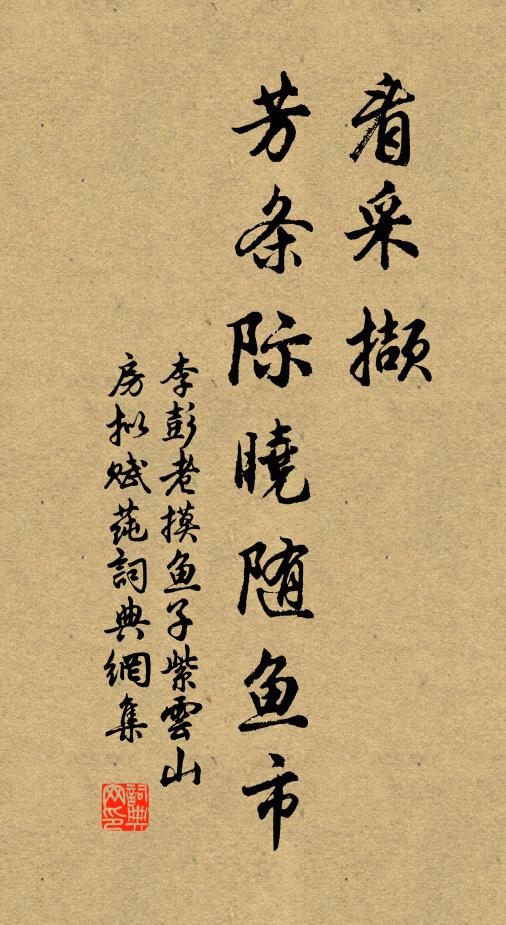 看采撷
芳条际晓随鱼市
李彭老摸鱼子紫雲山
房拟赋莼詞典網集
詞典
网印